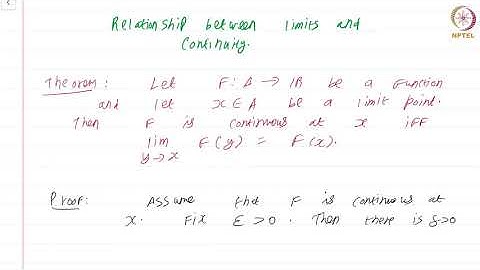 Relationship between limits and
Continuity.
NPTEL
Theorem: Let F: A → IR be a function
and let x ∈ A be a limit point.
Then F is continuous at x iff
lim F(y) = F(x).
y→x
Proof: Assume that F is continuous at
x. Fix ε > 0. Then there is δ>0